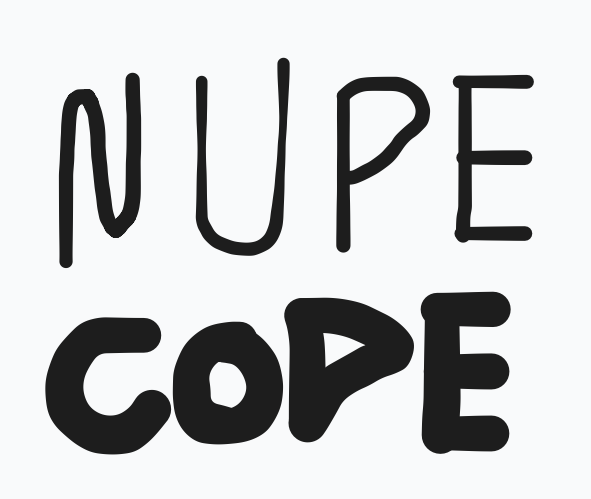 NUPE
COPE